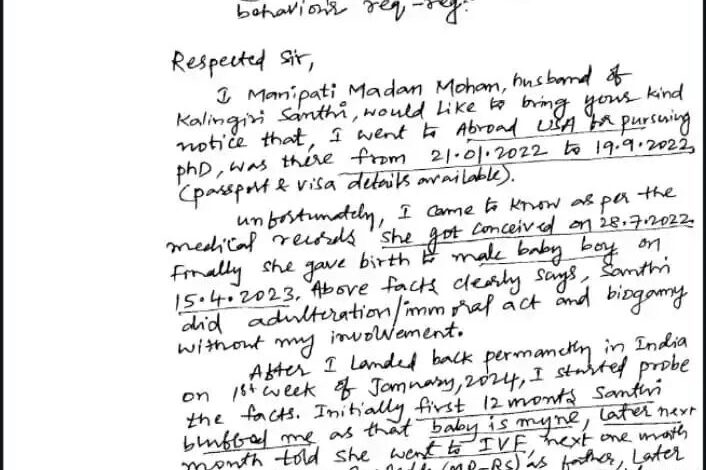 behaviour req-reg.
Respected Sir,
I Manipati Madan Mohan, husband of
Kalingiri Santhi, would like to bring your kind
notice that, I went to Abroad USA for pursuing
phD, was there from 21.01.2022 to 19.9.2022,
(passport & visa details available).
unfortunately, I came to know as per the
medical records she got conceived on 28.7.2022.
Finally she gave birth to male baby boy on
15.4.2023. Above facts clearly says, Santhi
did adulteration/immoral act and biogamy
without my involvement.
After I landed back permanetly in India
on 1st week of January, 2024, I started probe
the facts. Initially first 12 months Santhi
bluffed me as that baby is myne, later next
month told she went to IVF, next one month
(MD-RS) as father, Later